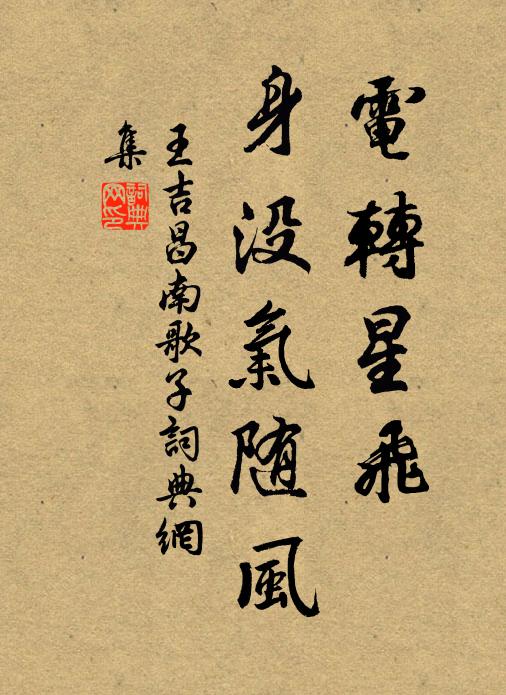 電轉星飛
身没氣随風
王吉昌南歌子詞典網
集
詞典
网印